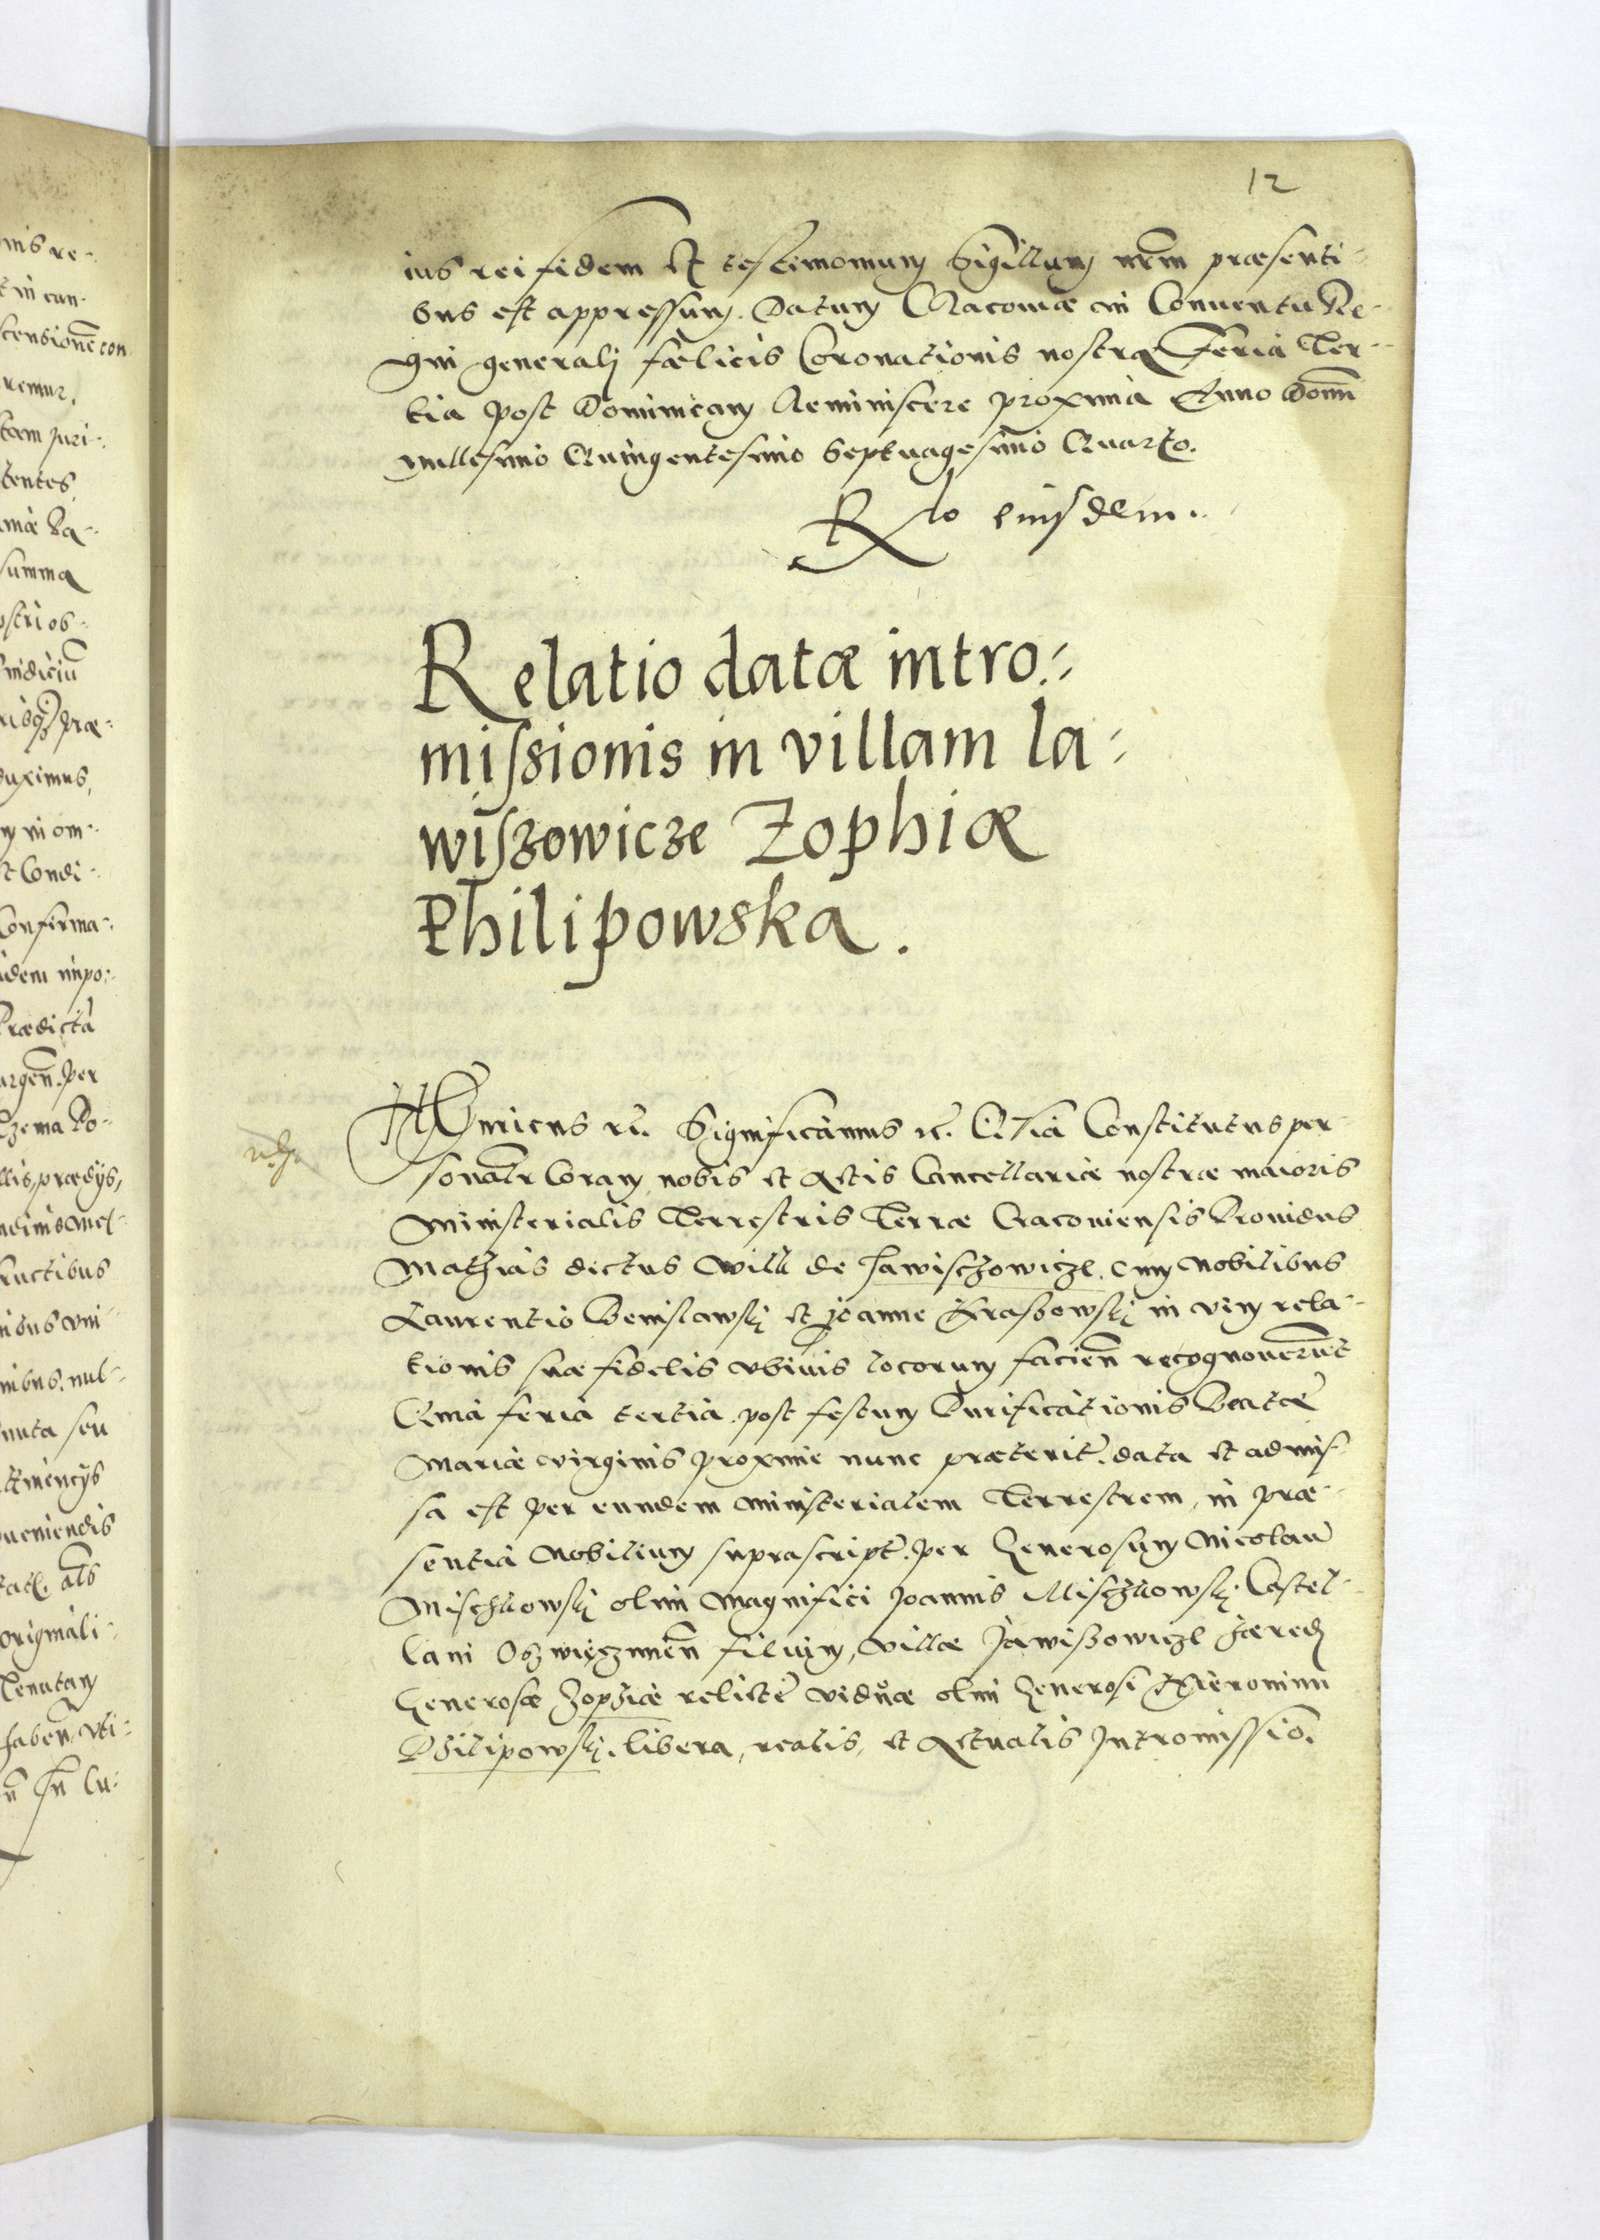 12
ius rei fidem et testimonium Sigillum nr̃m præsenti-
bus est appressum. Datum Cracoviæ in Conventu Re-
gni generalj fælicis Coronationis nostræ Feria Ter-
tia post Dominicam Reminiscere proxima Anno Domi
millesimo Quingentesimo Septuagesimo Quarto.
Rlo eiusdem.
Relatio datæ intro-
missionis in villam la-
wiszowicze Zophiæ
Philipowska.
Henricus rc. Significamus rc. Quia Constitutus per
sonalr Coram nobis et Actis Cancellariæ nostræ maioris
Ministerialis Terrestris Terræ Cracoviensis Providus
Mathias dictus Wilk de Jawischowicze. cum Nobilibus
Laurentio Benislawskj et Joanne Krassowskj in vim rela-
tionis suæ fidelis ubivis locorum facien recognoverunt
Quia feria tertia post festum Purificationis Beatæ
Mariæ virginis proxime nunc præterit. data et admis-
sa est per eundem ministerialem Terrestrem, in præ-
sentia Nobilium suprascript. per Generosum Nicolau
Mischkowskj olim Magnifici Joannis Mischkowskj Castel-
lani Oswięczimen filium, villæ Jawissowicze hæred
Generosæ Zophiæ relictæ viduæ olim Generosi Hieronimi
Philipowskj. libera, realis, et Actualis Intromissio.
nis re-
t in cun-
scensionē con
remur.
tam juri-
tentes
mæ Ra-
summa
ostri os-
indiciū
risq præ-
duximus,
m in om-
t Condi-
Confirma-
idem impo-
Prædicta
argen. per
llis, prædijs,
fructibus
nibus uni-
nibus. nul-
nuta seu
veniendis
originali-
Tenutam
haben uti-